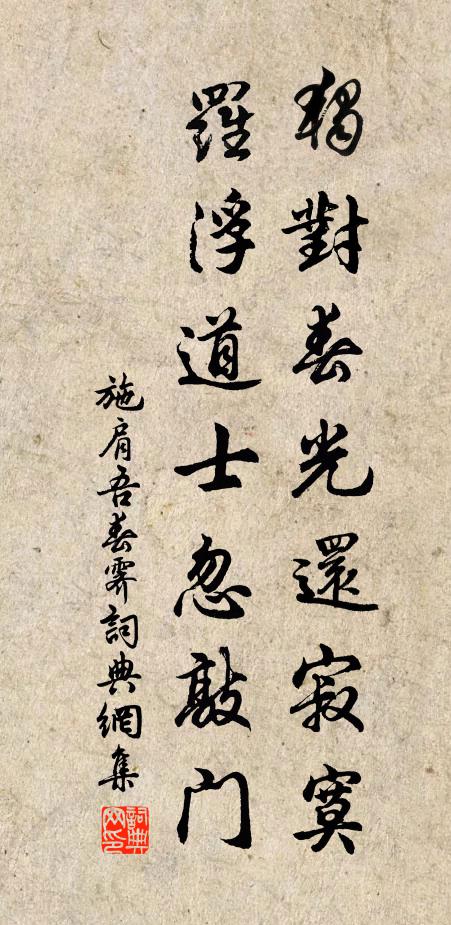 獨對春光還寂寞
羅浮道士忽敲門
施肩吾春霽詞典網集
詞典网印